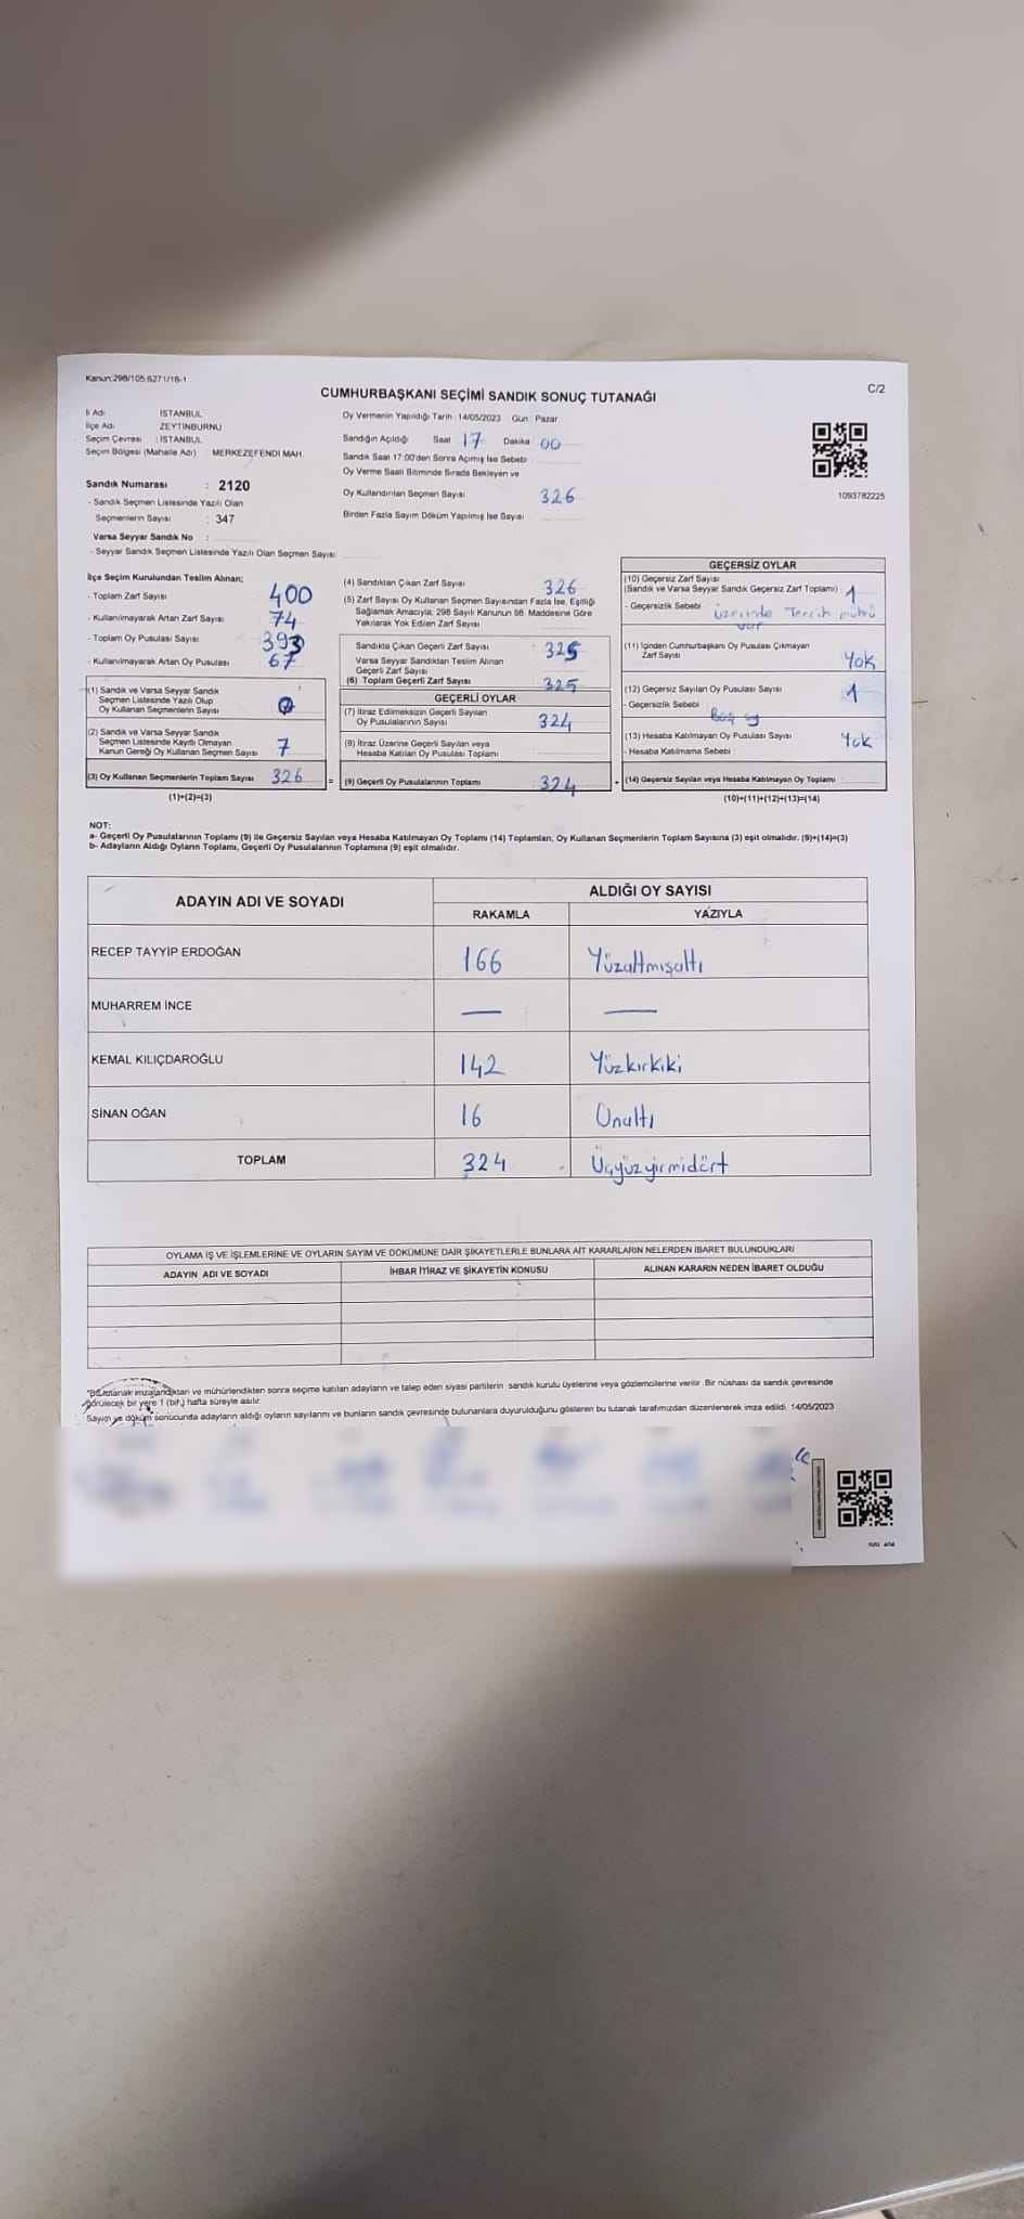 Kanun:298/105.6271/16-1
C/2
CUMHURBAŞKANI SEÇİMİ SANDIK SONUÇ TUTANAĞI
İl Adı : İSTANBUL
İlçe Adı : ZEYTİNBURNU
Seçim Çevresi : İSTANBUL
Seçim Bölgesi (Mahalle Adı) MERKEZEFENDİ MAH.
Sandık Numarası : 2120
- Sandık Seçmen Listesinde Yazılı Olan
Seçmenlerin Sayısı : 347
Varsa Seyyar Sandık No :
- Seyyar Sandık Seçmen Listesinde Yazılı Olan Seçmen Sayısı
Oy Vermenin Yapıldığı Tarih : 14/05/2023 Gün : Pazar
Sandığın Açıldığı Saat 17 Dakika 00
Sandık Saat 17:00'den Sonra Açılmış İse Sebebi
Oy Verme Saati Bitiminde Sırada Bekleyen ve
Oy Kullandırılan Seçmen Sayısı 326
Birden Fazla Sayım Döküm Yapılmış İse Sayısı
1093782225
İlçe Seçim Kurulundan Teslim Alınan;
- Toplam Zarf Sayısı 400
- Kullanılmayarak Artan Zarf Sayısı 74
- Toplam Oy Pusulası Sayısı 393
- Kullanılmayarak Artan Oy Pusulası 67
(1) Sandık ve Varsa Seyyar Sandık
Seçmen Listesinde Yazılı Olup
Oy Kullanan Seçmenlerin Sayısı
(2) Sandık ve Varsa Seyyar Sandık
Seçmen Listesinde Kayıtlı Olmayan
Kanun Gereği Oy Kullanan Seçmen Sayısı 7
(3) Oy Kullanan Seçmenlerin Toplam Sayısı 326
(1)+(2)=(3)
(4) Sandıktan Çıkan Zarf Sayısı 326
(5) Zarf Sayısı Oy Kullanan Seçmen Sayısından Fazla İse, Eşitliği
Sağlamak Amacıyla; 298 Sayılı Kanunun 98. Maddesine Göre
Yakılarak Yok Edilen Zarf Sayısı
Sandıkta Çıkan Geçerli Zarf Sayısı : 325
Varsa Seyyar Sandıktan Teslim Alınan
Geçerli Zarf Sayısı
(6) Toplam Geçerli Zarf Sayısı 325
GEÇERLİ OYLAR
(7) İtiraz Edilmeksizin Geçerli Sayılan
Oy Pusulalarının Sayısı 324
(8) İtiraz Üzerine Geçerli Sayılan veya
Hesaba Katılan Oy Pusulası Toplamı
= (9) Geçerli Oy Pusulalarının Toplamı 324
GEÇERSİZ OYLAR
(10) Geçersiz Zarf Sayısı
(Sandık ve Varsa Seyyar Sandık Geçersiz Zarf Toplamı) 1
- Geçersizlik Sebebi üzerinde Tercih mührü
var
(11) İçinden Cumhurbaşkanı Oy Pusulası Çıkmayan
Zarf Sayısı Yok
(12) Geçersiz Sayılan Oy Pusulası Sayısı 1
- Geçersizlik Sebebi Boş oy
(13) Hesaba Katılmayan Oy Pusulası Sayısı Yok
- Hesaba Katılmama Sebebi
+ (14) Geçersiz Sayılan veya Hesaba Katılmayan Oy Toplamı
(10)+(11)+(12)+(13)=(14)
NOT:
a- Geçerli Oy Pusulalarının Toplamı (9) ile Geçersiz Sayılan veya Hesaba Katılmayan Oy Toplamı (14) Toplamları, Oy Kullanan Seçmenlerin Toplam Sayısına (3) eşit olmalıdır. (9)+(14)=(3)
b- Adayların Aldığı Oyların Toplamı, Geçerli Oy Pusulalarının Toplamına (9) eşit olmalıdır.
ADAYIN ADI VE SOYADI
ALDIĞI OY SAYISI
RAKAMLA YAZIYLA
RECEP TAYYİP ERDOĞAN 166 Yüzaltmışaltı
MUHARREM İNCE — —
KEMAL KILIÇDAROĞLU 142 Yüzkırkiki
SİNAN OĞAN 16 Onaltı
TOPLAM 324 Üçyüzyirmidört
OYLAMA İŞ VE İŞLEMLERİNE VE OYLARIN SAYIM VE DÖKÜMÜNE DAİR ŞİKAYETLERLE BUNLARA AİT KARARLARIN NELERDEN İBARET BULUNDUKLARI
ADAYIN ADI VE SOYADI İHBAR İTİRAZ VE ŞİKAYETİN KONUSU ALINAN KARARIN NEDEN İBARET OLDUĞU
*Bu tutanak imzalandıktan ve mühürlendikten sonra seçime katılan adayların ve talep eden siyasi partilerin sandık kurulu üyelerine veya gözlemcilerine verilir. Bir nüshası da sandık çevresinde
görülecek bir yere 1 (bir) hafta süreyle asılır.
Sayım ve döküm sonucunda adayların aldığı oyların sayılarını ve bunların sandık çevresinde bulunanlara duyurulduğunu gösteren bu tutanak tarafımızdan düzenlenerek imza edildi. 14/05/2023